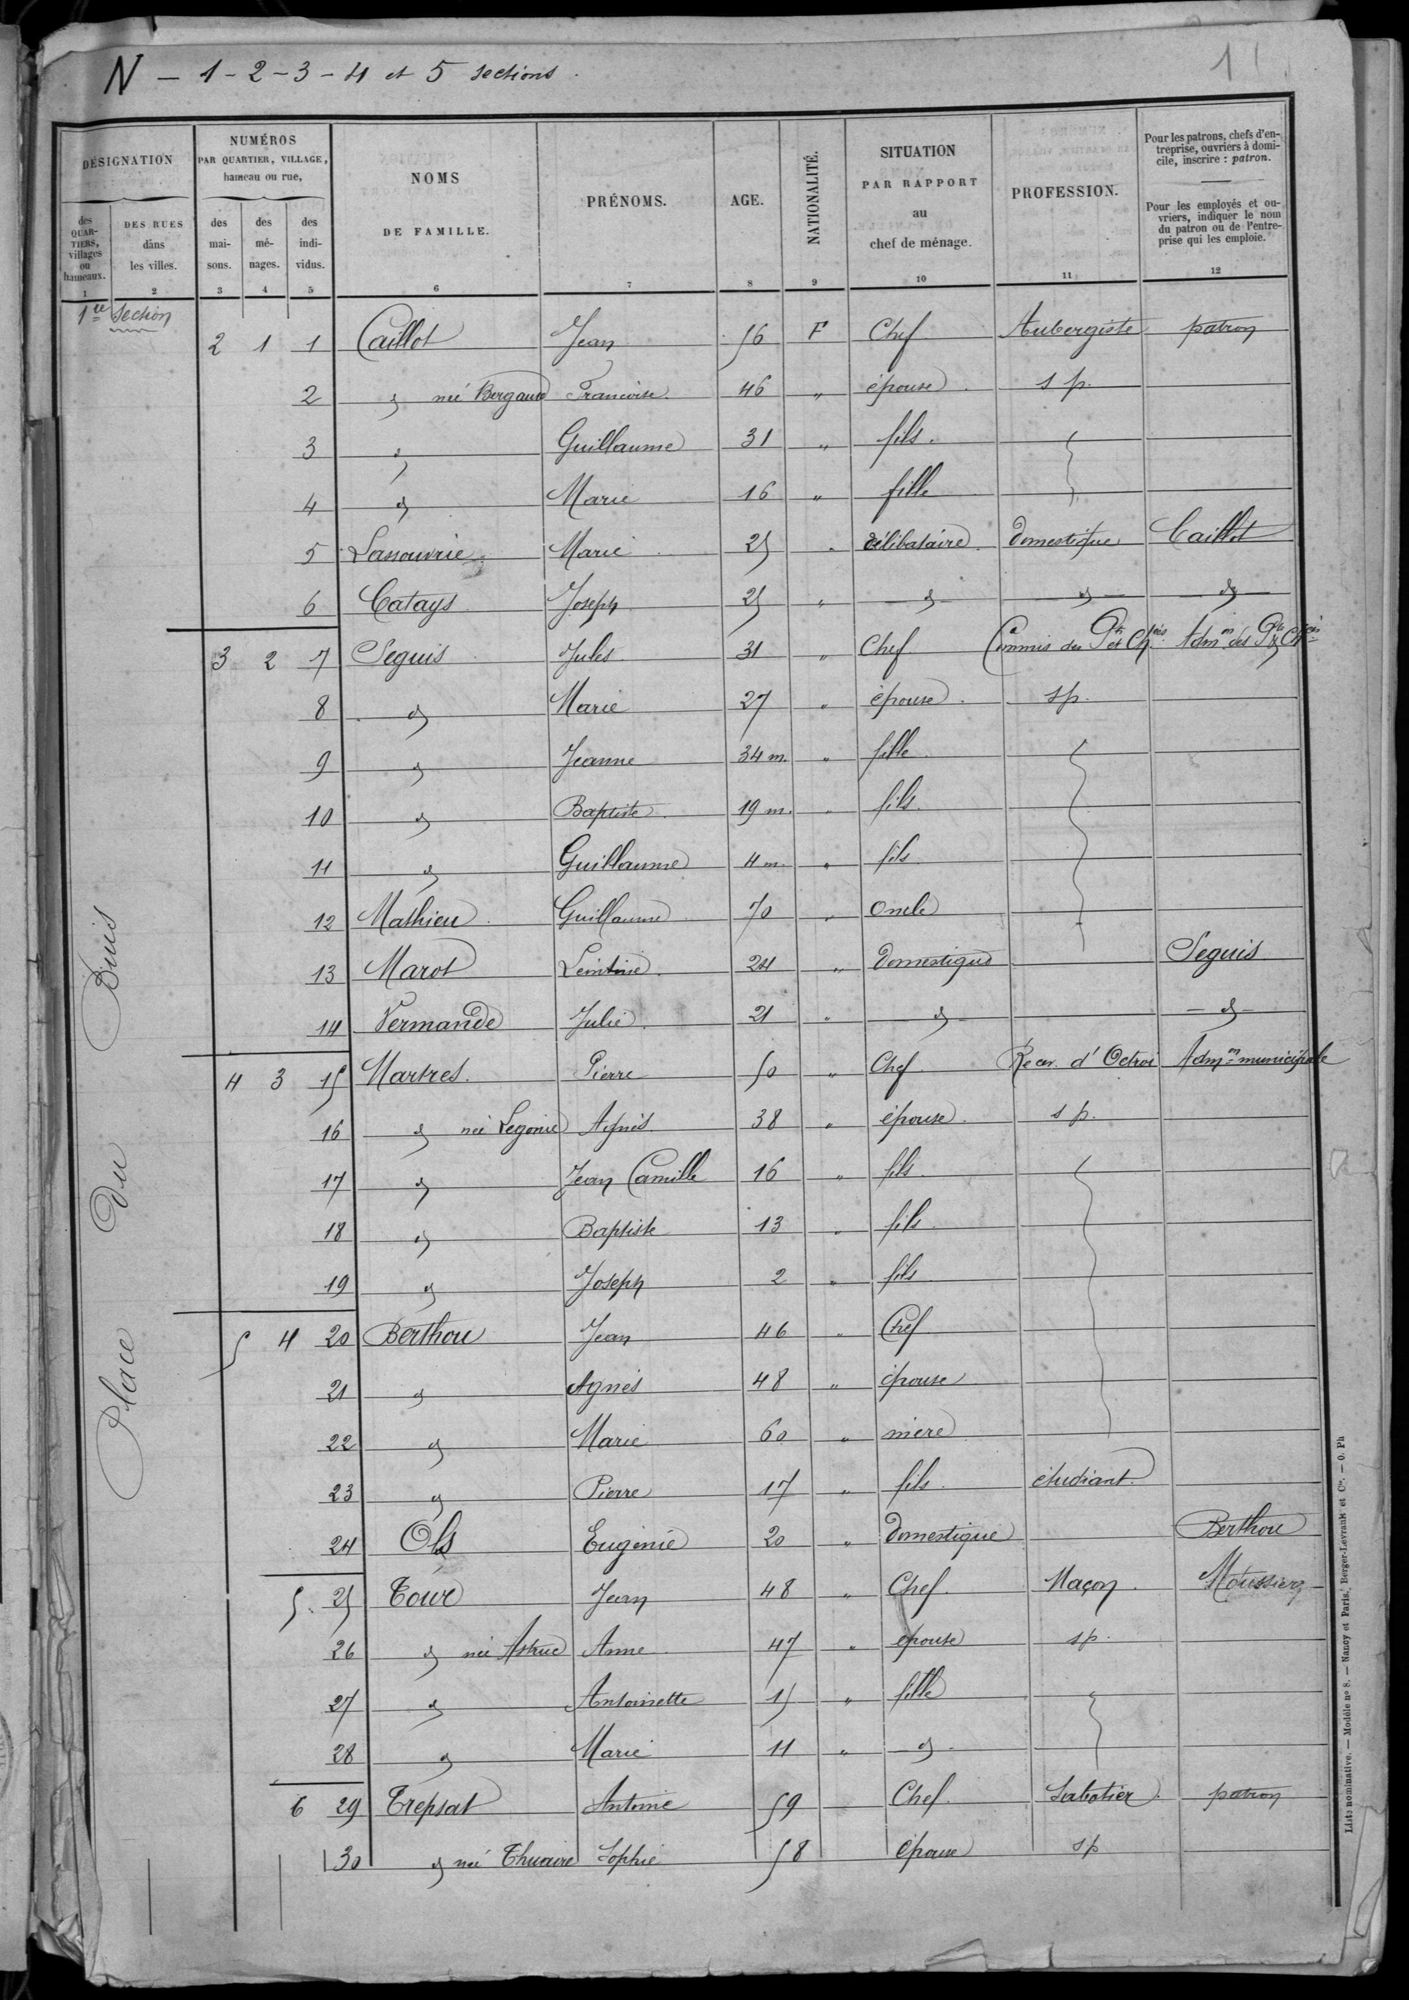 N - 1 - 2 - 3 - 4 et 5 sections.
11
DÉSIGNATION
des QUARTIERS, villages ou hameaux.
1
DES RUES dans les villes.
2
NUMÉROS PAR QUARTIER, VILLAGE, hameau ou rue,
des maisons.
3
des ménages.
4
des individus.
5
NOMS DE FAMILLE.
6
PRÉNOMS.
7
AGE.
8
NATIONALITÉ.
9
SITUATION PAR RAPPORT au chef de ménage.
10
PROFESSION.
11
Pour les patrons, chefs d'entreprise, ouvriers à domicile, inscrire : patron.
Pour les employés et ouvriers, indiquer le nom du patron ou de l'entreprise qui les emploie.
12
1re Section
Place du Puis
2 1 1 Caillot Jean 56 F Chef Aubergiste patron
2 d née Bergaud Francoise 46 " épouse s p.
3 d Guillaume 31 " fils
4 d Marie 16 " fille
5 Lassouvrie Marie 25 " célibataire domestique Caillot
6 Catays Joseph 25 " d d d
3 2 7 Seguis Jules 31 " Chef Commis des Ptes et Ch. Admon des Ptes & Ch.
8 d Marie 27 " épouse sp.
9 d Jeanne 34 m. " fille
10 d Baptiste 19 m. " fils
11 d Guillaume 4 m. " fils
12 Mathieu Guillaume 70 " oncle
13 Marot Léontine 24 " domestique Seguis
14 Vermande Julie 21 " d d
4 3 15 Martres Pierre 50 " Chef Recev. d'Octroi Admon municipale
16 d née Legonie Agnès 38 " épouse s p.
17 d Jean Camille 16 " fils
18 d Baptiste 13 " fils
19 d Joseph 2 " fils
5 4 20 Berthou Jean 46 " Chef
21 d Agnès 48 " épouse
22 d Marie 60 " mère
23 d Pierre 17 " fils étudiant
24 Ols Eugénie 20 " domestique Berthou
5. 25 Toure Jean 48 " Chef Maçon Moussier
26 d née Astruc Anne 47 " épouse sp.
27 d Antoinette 15 " fille
28 d Marie 11 " d
6 29 Trepsat Antoine 59 Chef Sabotier patron
30 d née Sophie 58 épouse sp
Liste nominative. — Modèle no 8. — Nancy et Paris, Berger-Levrault et Cie. — O. Ph